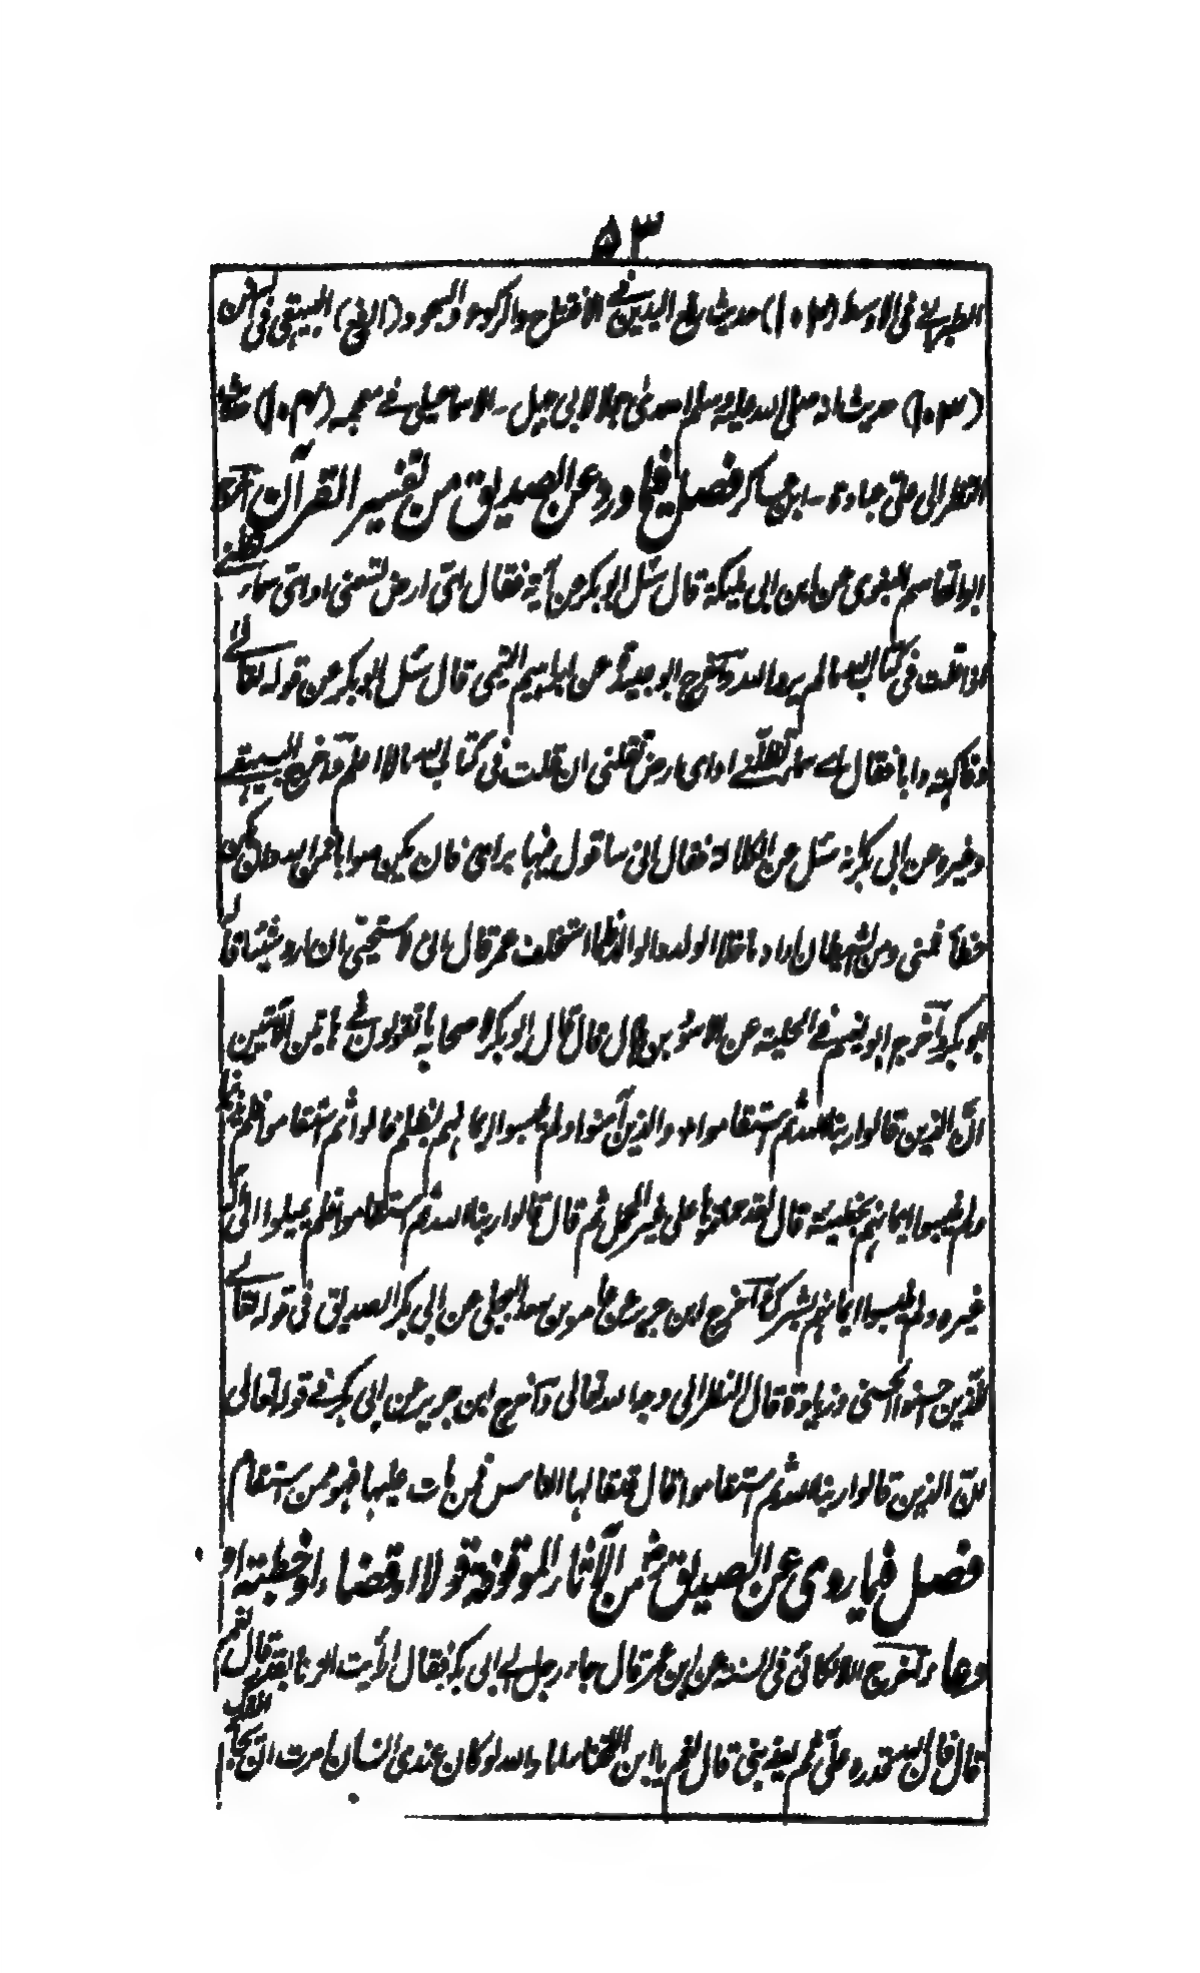 ٥٣
الطبراني في الاوسط (١٠٢) حديث رفع اليدين في الافتتاح والركوع والسجود (الرفع) البيهقي في السنن
(١٠٣) حديث انه صلى الله عليه وسلم اهدى جملا لابي جهل ـ الاسماعيلي في معجمه (١٠٤) حديث
النظر الى علي عبادة ـ ابن عساكر فصل فيما ورد عن الصديق من تفسير القرآن اخرج
ابو القاسم البغوي عن ابن ابي مليكة قال سئل ابو بكر عن آية فقال اي ارض تسعني او اي سماء تظلني
اذا قلت في كتاب الله ما لم يرد الله واخرج ابو عبيدة عن ابراهيم التيمي قال سئل ابو بكر عن قوله تعالى
وفاكهة وابا فقال اي سماء تظلني او اي ارض تقلني ان قلت في كتاب الله ما لا اعلم واخرج البيهقي
وغيره عن ابي بكر انه سئل عن الكلالة فقال اني ساقول فيها برايي فان يكن صوابا فمن الله وان يكن
خطأ فمني ومن الشيطان اراه ما خلا الولد والوالد فلما استخلف عمر قال اني لاستحيي ان ارد شيئا قاله
ابو بكر واخرج ابو نعيم في الحلية عن الاسود بن هلال قال قال ابو بكر لاصحابه ما تقولون في هاتين الآيتين
ان الذين قالوا ربنا الله ثم استقاموا والذين آمنوا ولم يلبسوا ايمانهم بظلم قالوا ثم استقاموا فلم يذنبوا
ولم يلبسوا ايمانهم بخطيئة قال لقد حملتموها على غير المحمل ثم قال قالوا ربنا الله ثم استقاموا فلم يميلوا الى اله
غيره ولم يلبسوا ايمانهم بشرك واخرج ابن جرير عن عامر بن سعد البجلي عن ابي بكر الصديق في قوله تعالى
للذين احسنوا الحسنى وزيادة قال النظر الى وجه الله تعالى واخرج ابن جرير عن ابي بكر في قوله تعالى
ان الذين قالوا ربنا الله ثم استقاموا قال قد قالها الناس فمن مات عليها فهو ممن استقام
فصل فيما روي عن الصديق رض من الآثار الموقوفة قولا او قضاء او خطبة او
دعاء واخرج اللالكائي في السنة عن ابن عمر قال جاء رجل الى ابي بكر فقال ارأيت الزنا بقدر قال نعم
قال فان الله قدره علي ثم يعذبني قال نعم يا ابن اللخناء اما والله لو كان عندي انسان امرت ان يجأ انفك